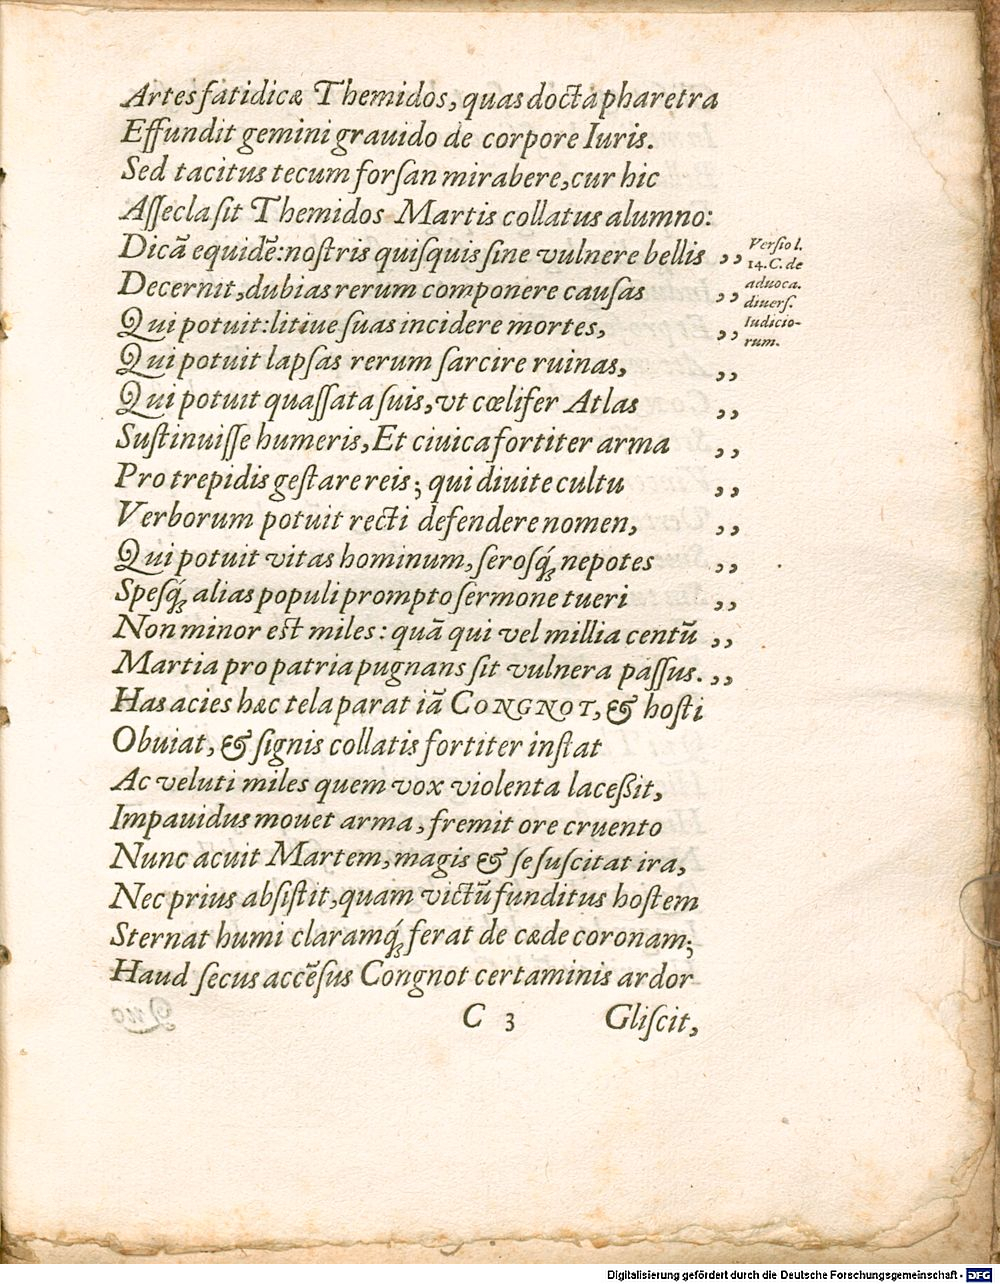 Artes fatidicæ Themidos, quas docta pharetra
Effundit gemini grauido de corpore Iuris.
Sed tacitus tecum forſan mirabere, cur hic
Aſſecla ſit Themidos Martis collatus alumno:
Dicā equidē: noſtris quiſquis ſine vulnere bellis ,,
Decernit, dubias rerum componere cauſas ,,
Qui potuit: litiue ſuas incidere mortes, ,,
Qui potuit lapſas rerum ſarcire ruinas, ,,
Qui potuit quaſſata ſuis, vt cœlifer Atlas ,,
Suſtinuiſſe humeris, Et ciuica fortiter arma ,,
Pro trepidis geſtare reis; qui diuite cultu ,,
Verborum potuit recti defendere nomen, ,,
Qui potuit vitas hominum, ſeroſq́; nepotes ,,
Speſq́; alias populi prompto ſermone tueri ,,
Non minor est miles: quā qui vel millia centū ,,
Martia pro patria pugnans ſit vulnera paſſus. ,,
Has acies hæc tela parat iā CONGNOT, & hoſti
Obuiat, & ſignis collatis fortiter inſtat
Ac veluti miles quem vox violenta laceßit,
Impauidus mouet arma, fremit ore cruento
Nunc acuit Martem, magis & ſe ſuſcitat ira,
Nec prius abſiſtit, quam victū funditus hoſtem
Sternat humi claramq́; ferat de cæde coronam;
Haud ſecus accēſus Congnot certaminis ardor
C 3 Gliſcit,
Verſio l.
14. C. de
aduoca.
diuerſ.
Iudicio-
rum.
Digitalisierung gefördert durch die Deutsche Forschungsgemeinschaft - DFG